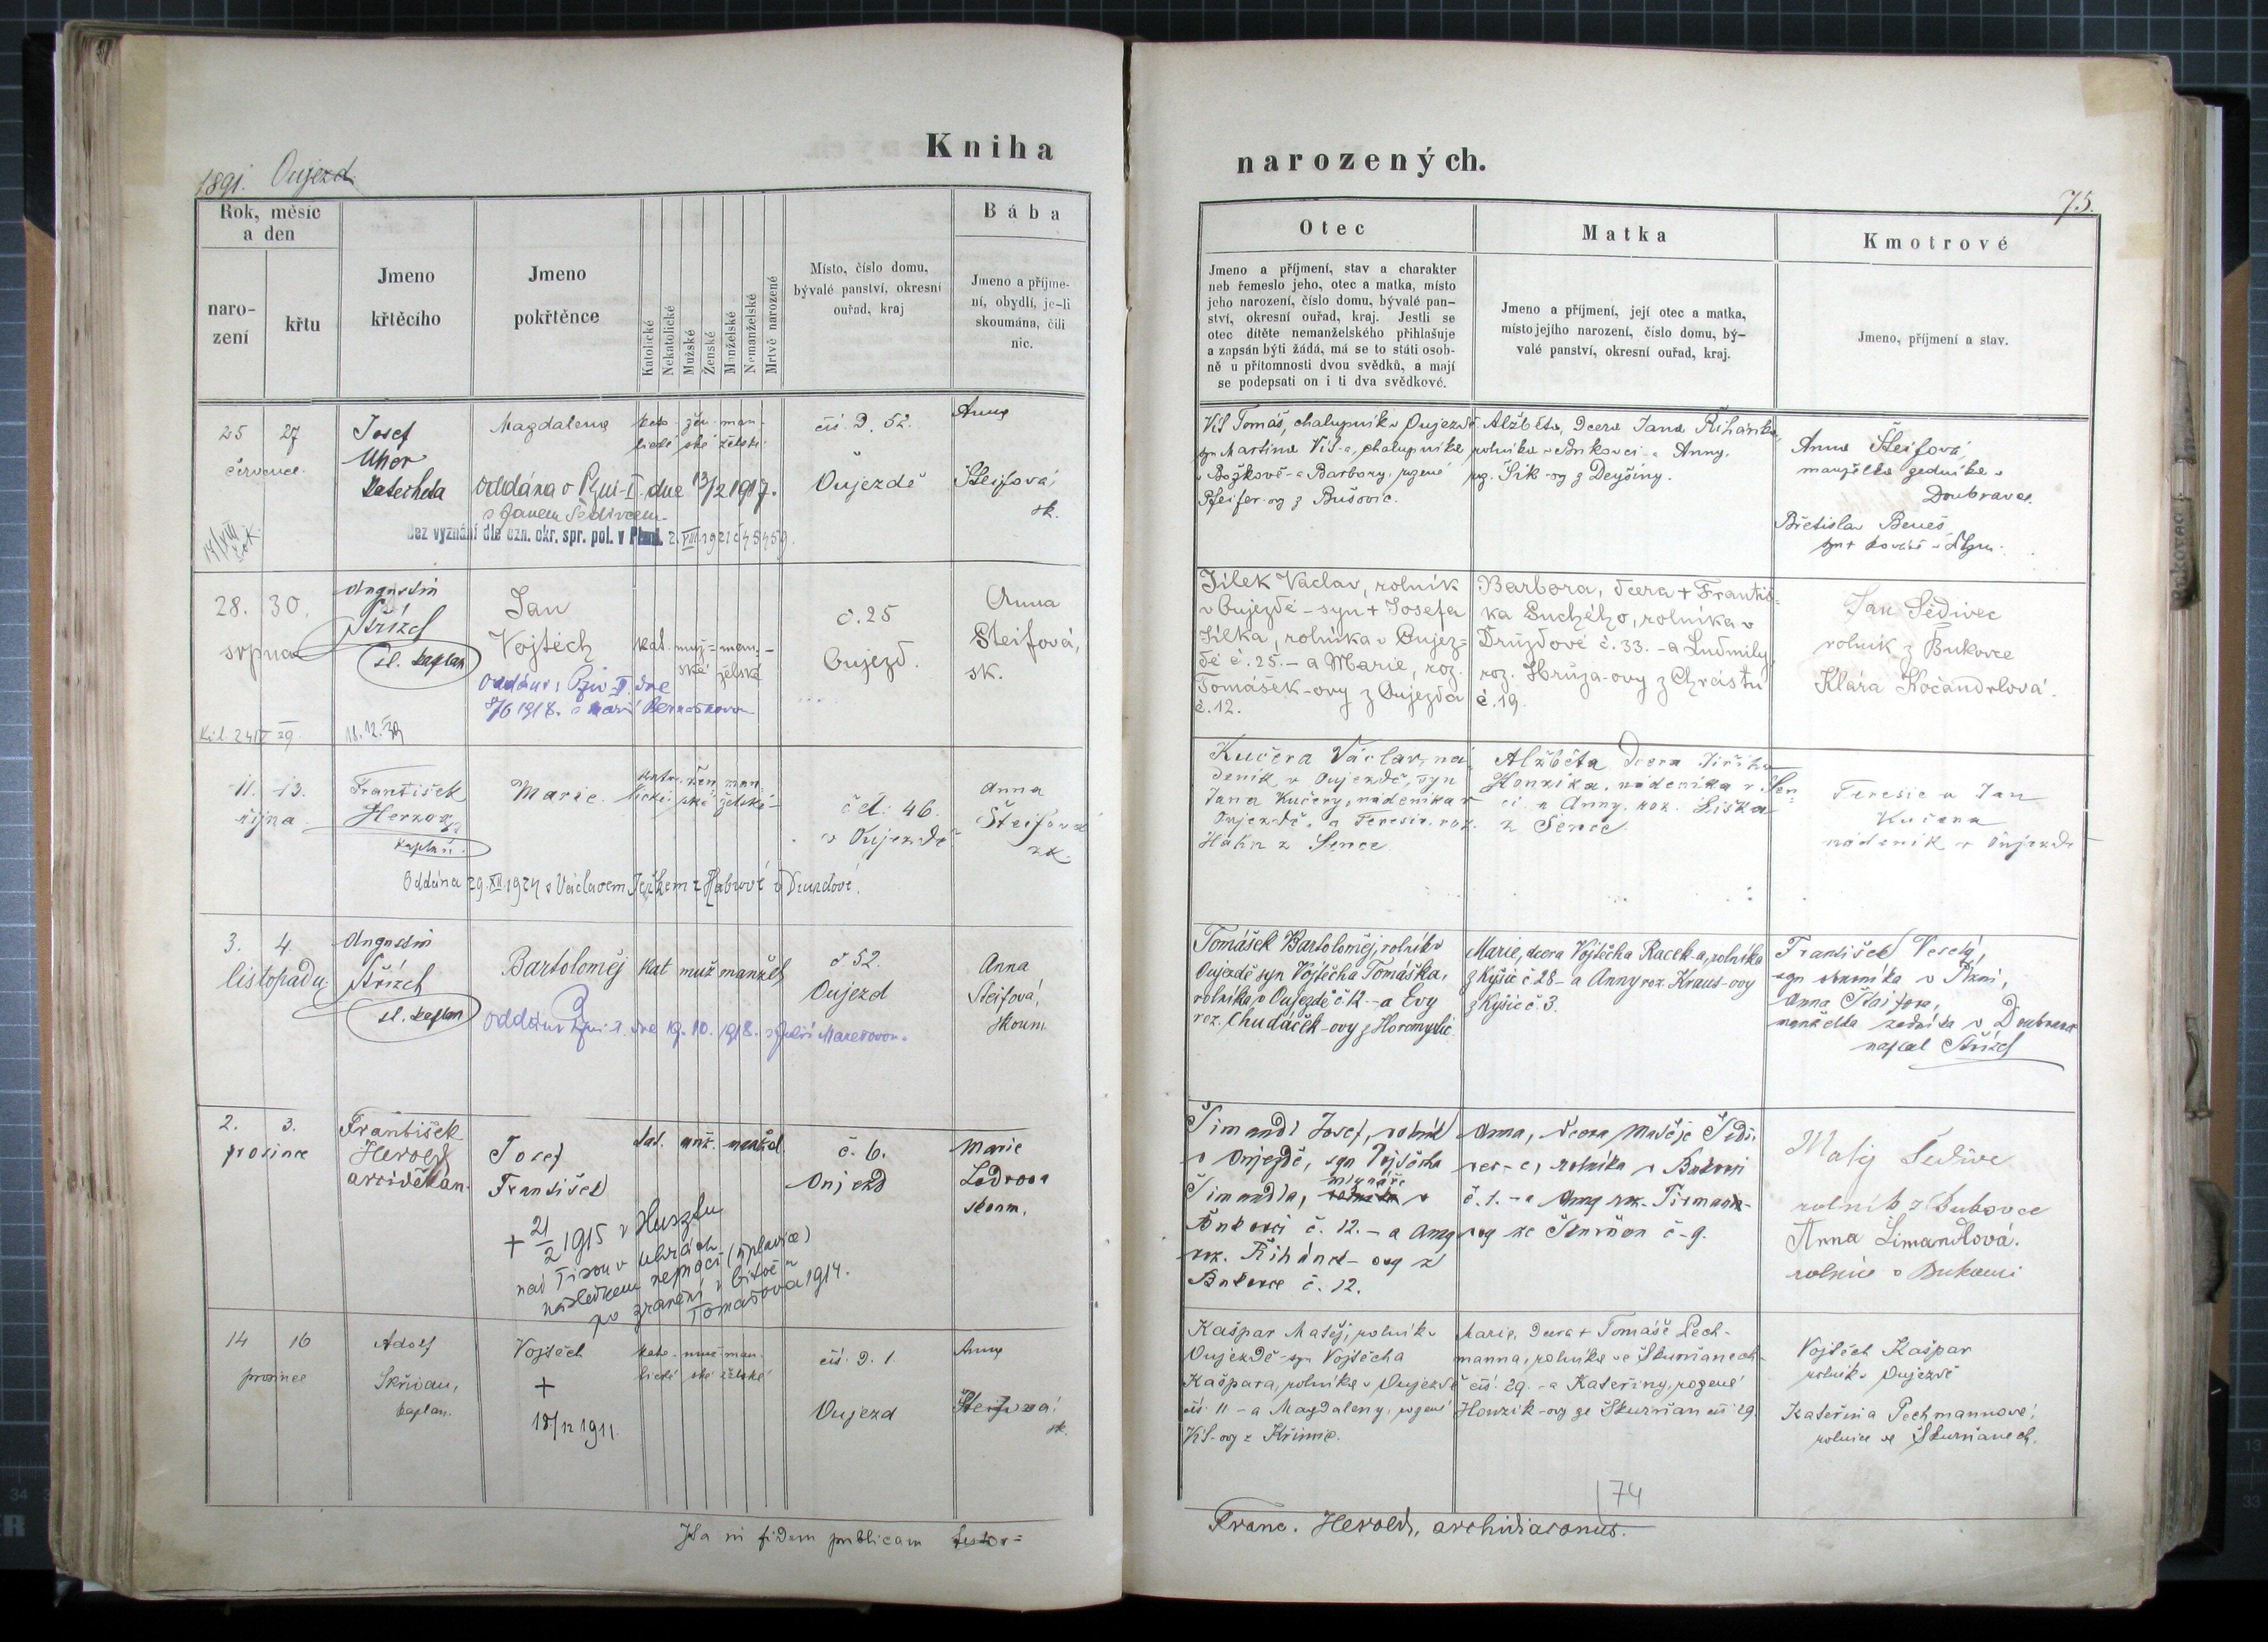 Kniha
narozených.
1891. Oujezd
73.
Rok, měsíc
a den
naro-
zení
křtu
Jmeno
křtěcího
Jmeno
pokřtěnce
Katolické
Nekatolické
Mužské
Ženské
Manželské
Nemanželské
Mrtvě narozené
Místo, číslo domu,
bývalé panství, okresní
ouřad, kraj
Bába
Jmeno a příjme-
ní, obydlí, je-li
skoumána, čili
nic.
Otec
Jmeno a příjmení, stav a charakter
neb řemeslo jeho, otec a matka, místo
jeho narození, číslo domu, bývalé pan-
ství, okresní ouřad, kraj. Jestli se
otec dítěte nemanželského přihlašuje
a zapsán býti žádá, má se to státi osob-
ně u přítomnosti dvou svědků, a mají
se podepsati on i ti dva svědkové.
Matka
Jmeno a příjmení, její otec a matka,
místo jejího narození, číslo domu, bý-
valé panství, okresní ouřad, kraj.
Kmotrové
Jmeno, příjmení a stav.
25 27
července
Josef
Uher
Katecheta
Magdalena
kato- žen- man-
lické ské želské
oddána v Plzni-I. dne 13/2 1917.
s Janem Šedivcem
Bez vyznání dle ozn. okr. spr. pol. v Plzni. 2. VIII. 1921 č 45459.
čís. D. 52.
Oujezdě
Anna
Steifová,
sk.
Vís Tomáš, chalupník v Oujezdě
syn Martina Vís-a, chalupníka
v Božkově - a Barbory, rozené
Pfeifer-ovy z Bušovic.
Alžběta, dcera Jana Řihánka,
rolníka v Bukovci - a Anny,
roz. Šik-ovy z Deyšiny.
Anna Šteifová,
manželka zedníka v
Doubravce.
Břetislav Beneš
syn kováře v Plzni.
28. 30.
srpna
Augustin
Střízel
sl. kaplan
Jan
Vojtěch
kat. muž- man-
ské želské
Oddán v Plzni II. dne
8/6 1918. s Marií
č. 25
Oujezd.
Anna
Steifová,
sk.
Jílek Václav, rolník
v Oujezdě - syn + Josefa
Jílka, rolníka v Oujez-
dě č. 25. - a Marie, roz.
Tomášek-ovy z Oujezda
č. 12.
Barbora, dcera + Františ-
ka Suchého, rolníka v
Druzdové č. 33. - a Ludmily,
roz. Hrůza-ovy z Chrástu
č. 19.
Jan Šedivec
rolník z Bukovce
Klára Kočandrlová.
11. 13.
října
František
Herzog
kaplan.
Marie.
kato- žen- man-
lické ské želské
Oddána 29. XII. 1924 s Václavem Ježkem z Habrové v Druzdové.
č d. 46.
v Oujezdě
Anna
Šteifová
zk.
Kučera Václav, ná-
deník v Oujezdě, syn
Jana Kučery, nádeníka v
Oujezdě, a Teresie roz.
Hahn z Sence
Alžběta dcera Jiřího
Honzíka, nádeníka v Sen-
ci a Anny, roz. Liška
z Sence.
Teresie a Jan
Kučera
nádeník v Oujezdě
3. 4.
listopadu
Augustin
Střízel
sl. kaplan
Bartoloměj
kat muž manžel
Oddán v Plzni I. dne 19. 10. 1918.
č 52.
Oujezd
Anna
Steifová,
skoum.
Tomášek Bartoloměj, rolník v
Oujezdě syn Vojtěcha Tomáška,
rolníka v Oujezdě č 12 - a Evy
roz. Chudáček-ovy z Horomyslic
Marie, dcera Vojtěcha Racek-a, rolníka
z Kyšic č 28 - a Anny roz. Kraus-ovy
z Kyšic č 3.
František Veselý,
syn v Plzni,
Anna Steifova,
manželka zedníka v Doubravce
napsal Střízel
2. 3.
prosince
František
Herold
arciděkan
Josef
František
kat. muž. manžel
+ 21/2 1915 v Huszt
nad Tisou v Uhrách
následkem nemoci (úplavice)
po zranění v bitvě u
Tomašova 1914.
č. 6.
Oujezd
Marie
Lodrova
skoum.
Šimandl Josef, rolník
v Oujezdě, syn Vojtěcha
mlynáře
Šimandla, rolníka v
Bukovci č. 12. - a Anny
roz. Řihánek-ovy z
Bukovce č. 12.
Anna, dcera Matěje Šedi-
vec-e, rolníka v Bukovci
č. 1. - a Anny roz. Tirman-
ovy ze Škurňan č - 9.
Matěj Šedivec
rolník z Bukovce
Anna Šimandlová.
rolnice v Bukovci
14 16
prosince
Adolf
Skřivan,
kaplan.
Vojtěch
+
18/12 1911.
kato- muž- man-
lické ské želské
čís. D. 1.
Oujezd
Anna
Šteifová,
sk.
Kašpar Matěj, rolník v
Oujezdě - syn Vojtěcha
Kašpara, rolníka v Oujezdě
čís. 11 - a Magdaleny, rozené
Vís-ovy z Křimic.
Marie, dcera + Tomáše Pech-
manna, rolníka ve Škurňanech
čís. 29. - a Kateřiny, rozené
Honzík-ovy ze Škurňan čís. 29.
Vojtěch Kašpar
rolník v Oujezdě
Kateřina Pechmannová,
rolnice ve Škurňanech.
74
Ita in fidem publicam testor=
Franc. Herold, archidiaconus.